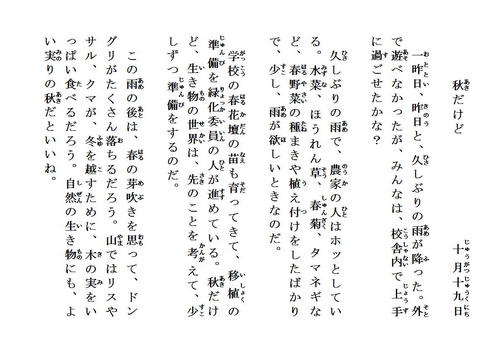 秋だけど
十月十九日
一昨日、昨日と、久しぶりの雨が降った。外
で遊べなかったが、みんなは、校舎内で上手
に過ごせたかな？
久しぶりの雨で、農家の人はホッとしてい
る。水菜、ほうれん草、春菊、タマネギな
ど、春野菜の種まきや植え付けをしたばかり
で、少し、雨が欲しいときなのだ。
学校の春花壇の苗も育ってきて、移植の
準備を緑化委員の人が進めている。秋だけ
ど、生き物の世界は、先のことを考えて、少
しずつ準備をするのだ。
この雨の後は、春の芽吹きを思って、ドン
グリがたくさん落ちるだろう。山ではリスや
サル、クマが、冬を越すために、木の実をい
っぱい食べるだろう。自然の生き物にも、よ
い実りの秋だといいね。